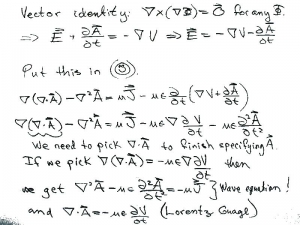 Vector identity: ∇×(∇Φ)=0⃗ for any Φ.
⇒ E⃗ + ∂A⃗/∂t = -∇V ⇒ E⃗ = -∇V - ∂A⃗/∂t
Put this in ⑧.
∇(∇·A⃗) - ∇²A⃗ = μJ⃗ - με ∂/∂t (∇V + ∂A⃗/∂t)
∇(∇·A⃗) - ∇²A⃗ = μJ⃗ - με∇ ∂V/∂t - με ∂²A⃗/∂t²
We need to pick ∇·A⃗ to finish specifying A⃗.
If we pick ∇(∇·A⃗) = -με∇ ∂V/∂t then
we get ∇²A⃗ - με ∂²A⃗/∂t² = -μJ⃗ } Wave equation!
and ∇·A⃗ = -με ∂V/∂t (Lorentz Guage)